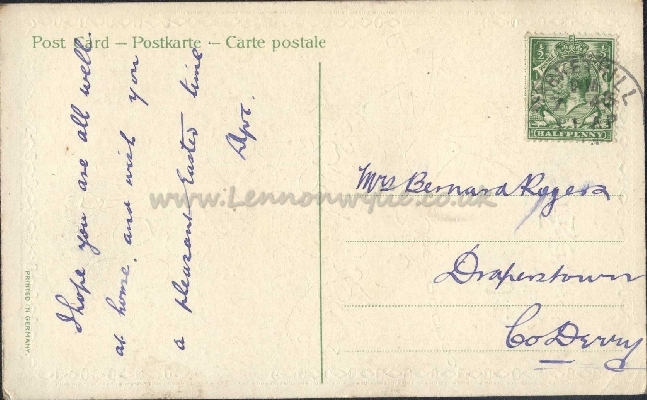 Post Card – Postkarte – Carte postale
I hope you are all well
at home, and wish you
a pleasant Easter time
½ ½
HALFPENNY
Mrs Bernard Rogers
Draperstown
Co Derry
PRINTED IN GERMANY.
www.Lennonwylie.co.uk